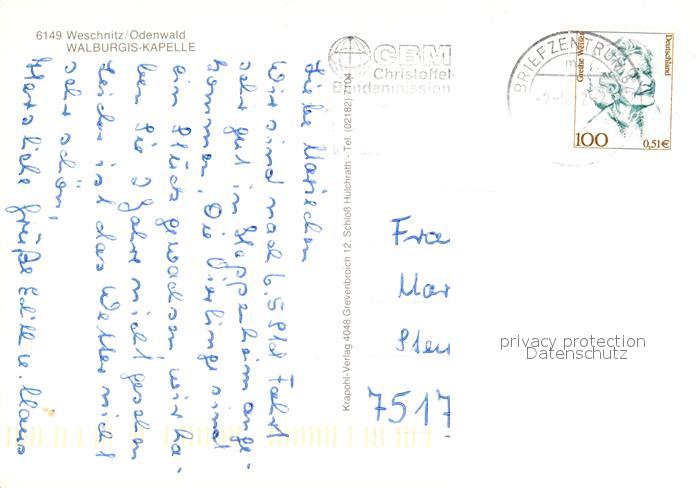 6149 Weschnitz/Odenwald
WALBURGIS-KAPELLE
Liebe Mariechen
Wir sind nach 6,5 Std Fahrt
sehr gut in Heppenheim ange-
kommen, Die Vierlinge sind
ein Stück gewachsen wir ha-
ben sie 2 Jahre nicht gesehen
Leider ist das Wetter nicht
sehr schön,
Herzliche Grüße Edith u. Klaus
Krapohl-Verlag 4048 Grevenbroich 12, Schloß Hülchrath - Tel. (02182) 7104
CBM
Christoffel-
Blindenmission
BRIEFZENTRUM
Grethe Weiser
Deutschland
100
0,51€
Fra
Mar
Sten
7517
privacy protection
Datenschutz